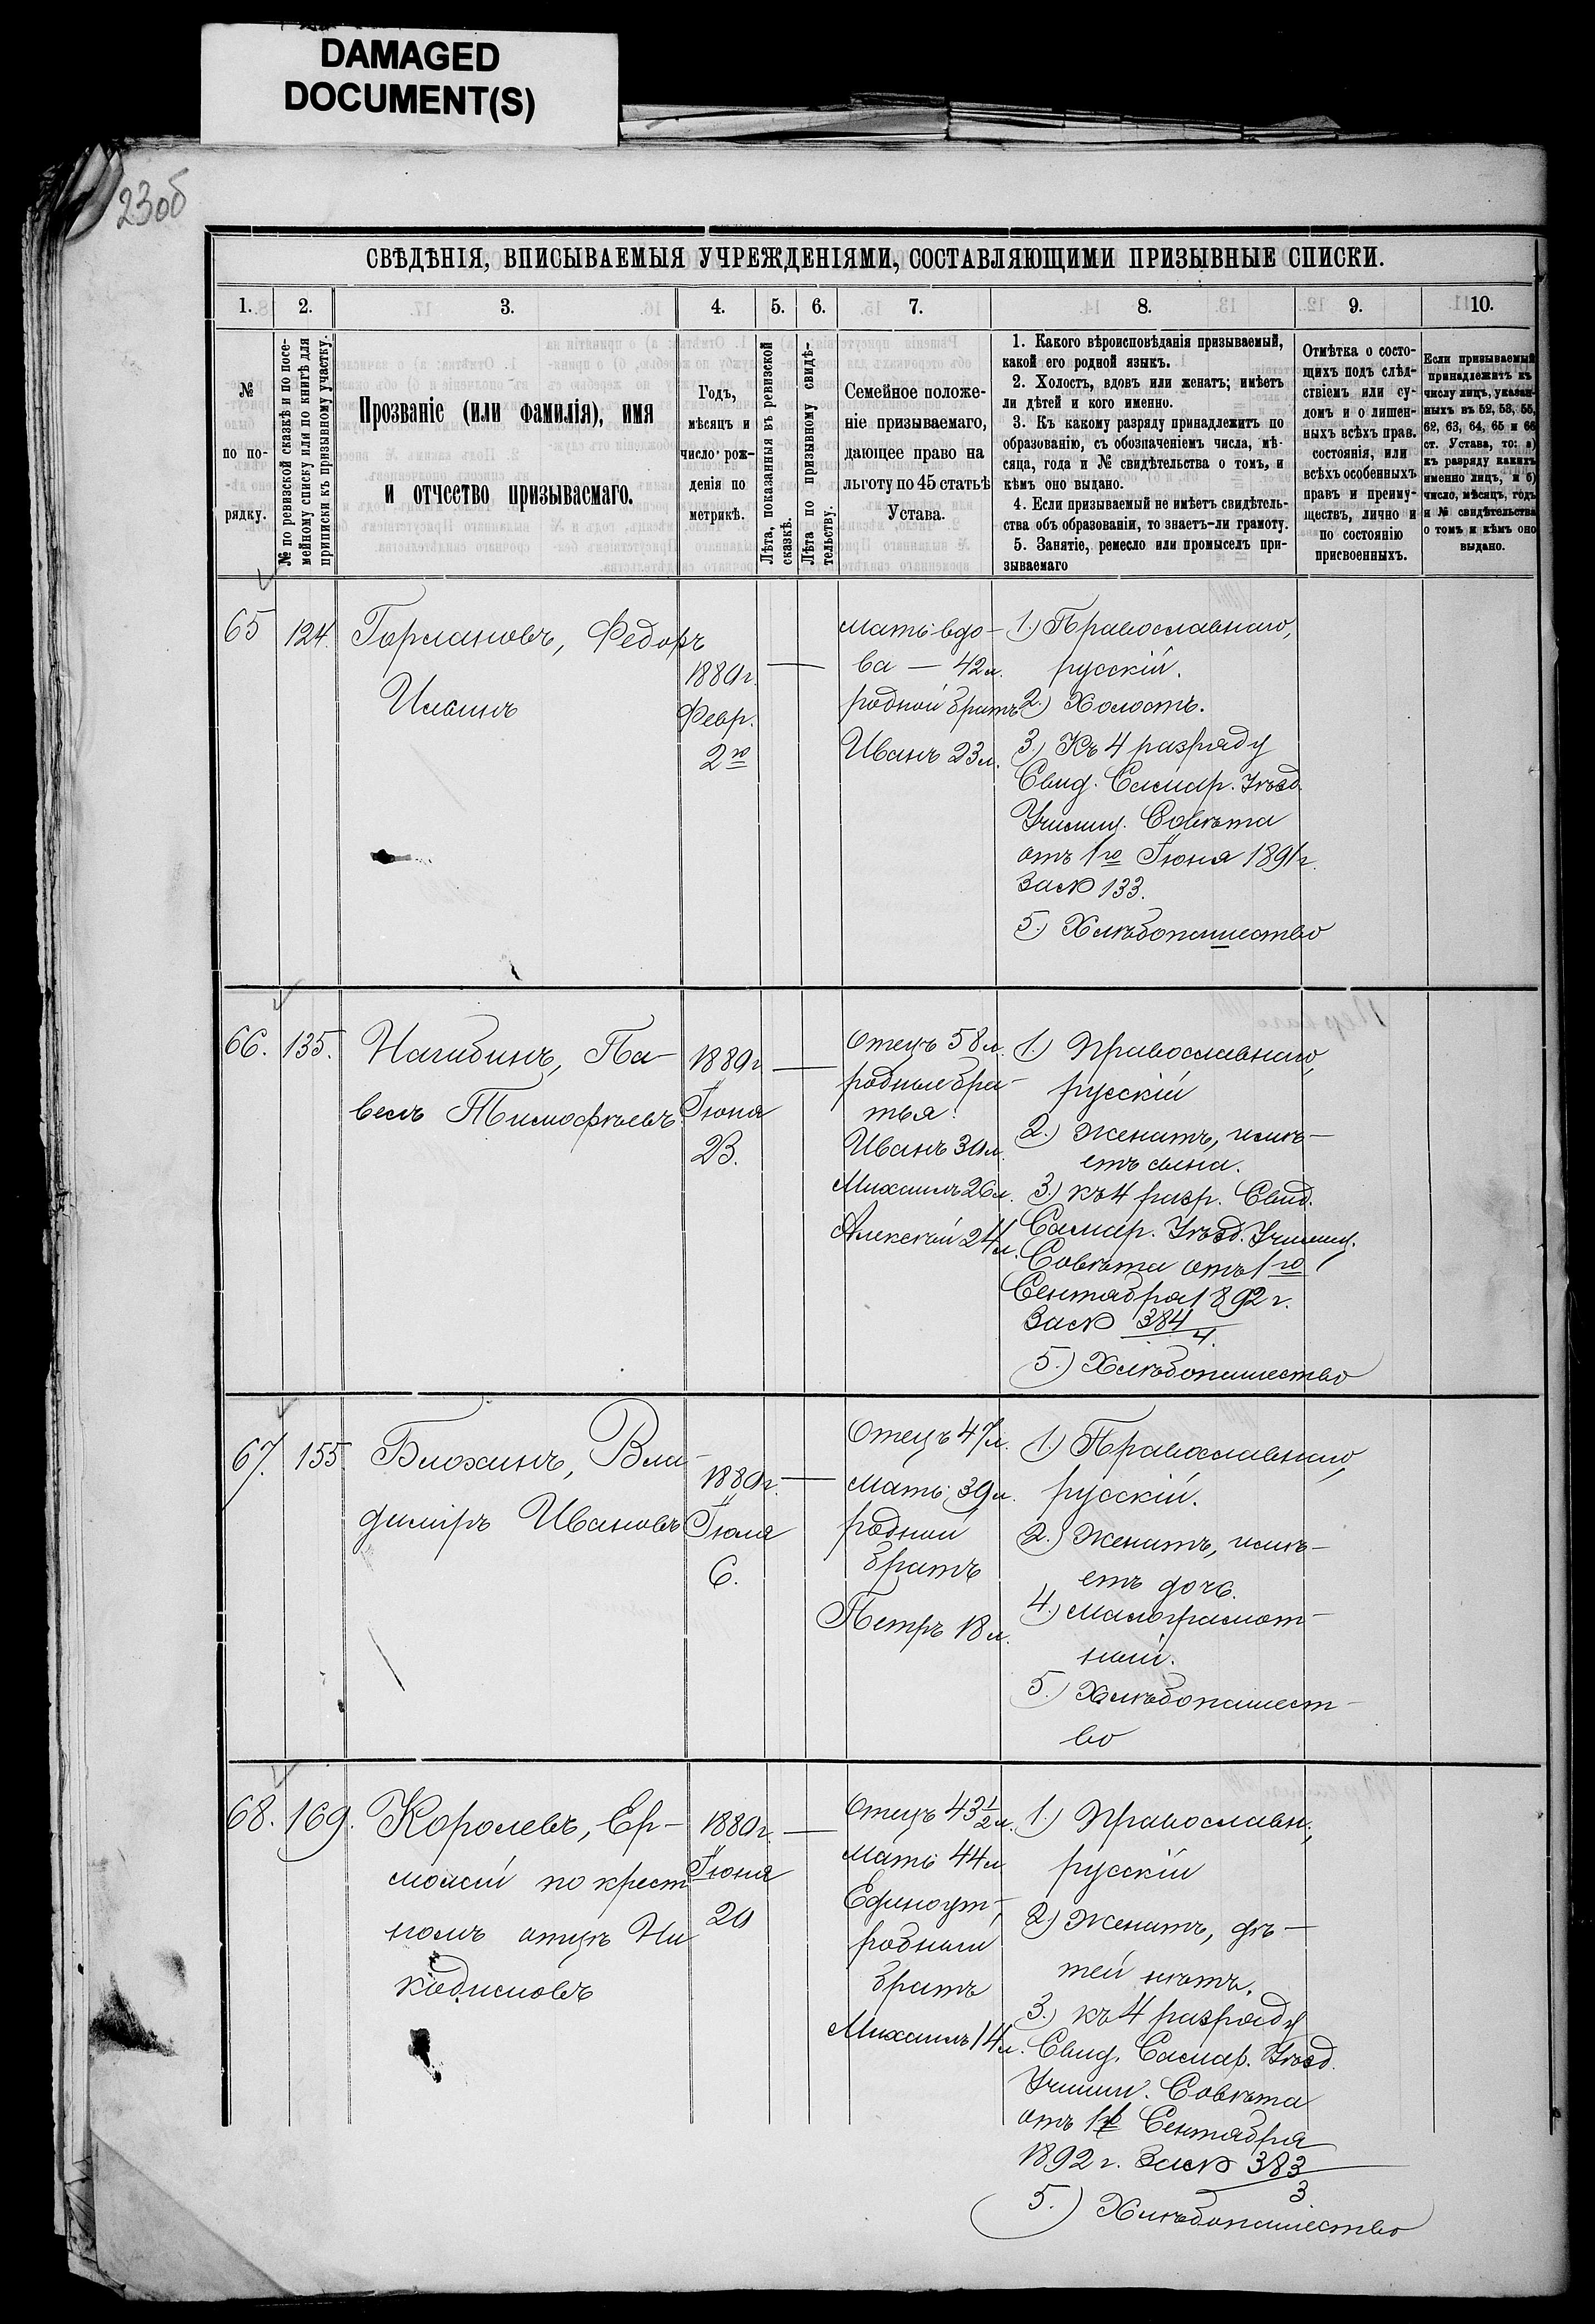 DAMAGED
DOCUMENT(S)
230б
СВѢДѢНІЯ, ВПИСЫВАЕМЫЯ УЧРЕЖДЕНІЯМИ, СОСТАВЛЯЮЩИМИ ПРИЗЫВНЫЕ СПИСКИ.
1. 2. 3. 4. 5. 6. 7. 8. 9. 10.
№
по по-
рядку.
№ по ревизской сказкѣ и по посе-
мейному списку или по книгѣ для
приписки къ призывному участку.
Прозваніе (или фамилія), имя
и отчество призываемаго.
Годъ,
мѣсяцъ и
число рож-
денія по
метрикѣ.
Лѣта, показанныя въ ревизской
сказкѣ.
Лѣта по призывному свидѣ-
тельству.
Семейное положе-
ніе призываемаго,
дающее право на
льготу по 45 статьѣ
Устава.
1. Какого вѣроисповѣданія призываемый,
какой его родной языкъ.
2. Холостъ, вдовъ или женатъ; имѣетъ
ли дѣтей и кого именно.
3. Къ какому разряду принадлежитъ по
образованію, съ обозначеніемъ числа, мѣ-
сяца, года и № свидѣтельства о томъ, и
кѣмъ оно выдано.
4. Если призываемый не имѣетъ свидѣтель-
ства объ образованіи, то знаетъ-ли грамоту.
5. Занятіе, ремесло или промыселъ при-
зываемаго
Отмѣтка о состо-
щихъ подъ слѣд-
ствіемъ или су-
домъ и о лишен-
ныхъ всѣхъ прав.
состоянія, или
всѣхъ особенныхъ
правъ и преиму-
ществъ, лично и
по состоянію
присвоенныхъ.
Если призываемый
принадлежитъ къ
числу лицъ, указан-
ныхъ въ 52, 53, 55,
62, 63, 64, 65 и 66
ст. Устава, то: а)
къ разряду какихъ
именно лицъ, и б)
число, мѣсяцъ, годъ
и № свидѣтельства
о томъ и кѣмъ оно
выдано.
65 124. Горлановъ, Федоръ
Ильинъ
1880 г.
Февр.
2го
мать вдо-
ва — 42 л.
родной братъ
Иванъ 23 л.
1.) Православнаго,
русскій.
2.) Холостъ.
3.) Къ 4 разряду
Свид. Самар. Уѣзд.
Училищ. Совѣта
отъ 1го Іюня 1891 г.
За № 133.
5.) Хлѣбопашество
66. 135. Нагибинъ, Па-
велъ Тимофѣевъ
1880 г
Іюня
23.
Отецъ 58 л.
родные бра-
тья:
Иванъ 30 л.
Михаилъ 26 л.
Алексѣй 24 л.
1.) Православнаго,
русскій
2.) Женатъ, имѣ-
етъ сына.
3.) къ 4 разр. Свид.
Самар. Уѣзд. Училищ.
Совѣта отъ 1го
Сентября 1892 г.
За № 384/4.
5.) Хлѣбопашество
67. 155. Блохинъ, Вла-
диміръ Ивановъ
1880 г.
Іюля
6.
Отецъ 47 л.
мать 39 л.
родной
братъ
Петръ 18 л.
1.) Православнаго,
русскій.
2.) Женатъ, имѣ-
етъ дочь.
4.) малограмот-
ный.
5.) Хлѣбопашест-
во
68. 169. Королевъ, Ер-
молай по крест
номъ отцѣ Ни
кодимовъ
1880 г.
Іюня
20
Отецъ 43½ л.
мать 44 л
Единоут-
робный
братъ
Михаилъ 14 л.
1.) Православн.,
русскій
2.) Женатъ, дѣ-
тей нѣтъ.
3.) къ 4 разряду
Свид. Самар. Уѣзд.
Училищ. Совѣта
отъ 1го Сентября
1892 г. За № 383/3
5.) Хлѣбопашество